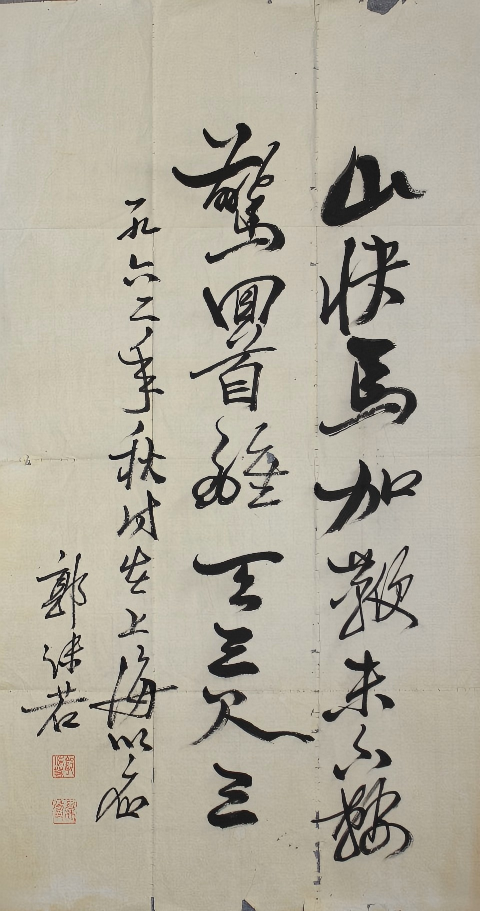 山快馬加鞭未下鞍
驚回首離天三尺三
一九六二年秋时在上海以应
郭沫若